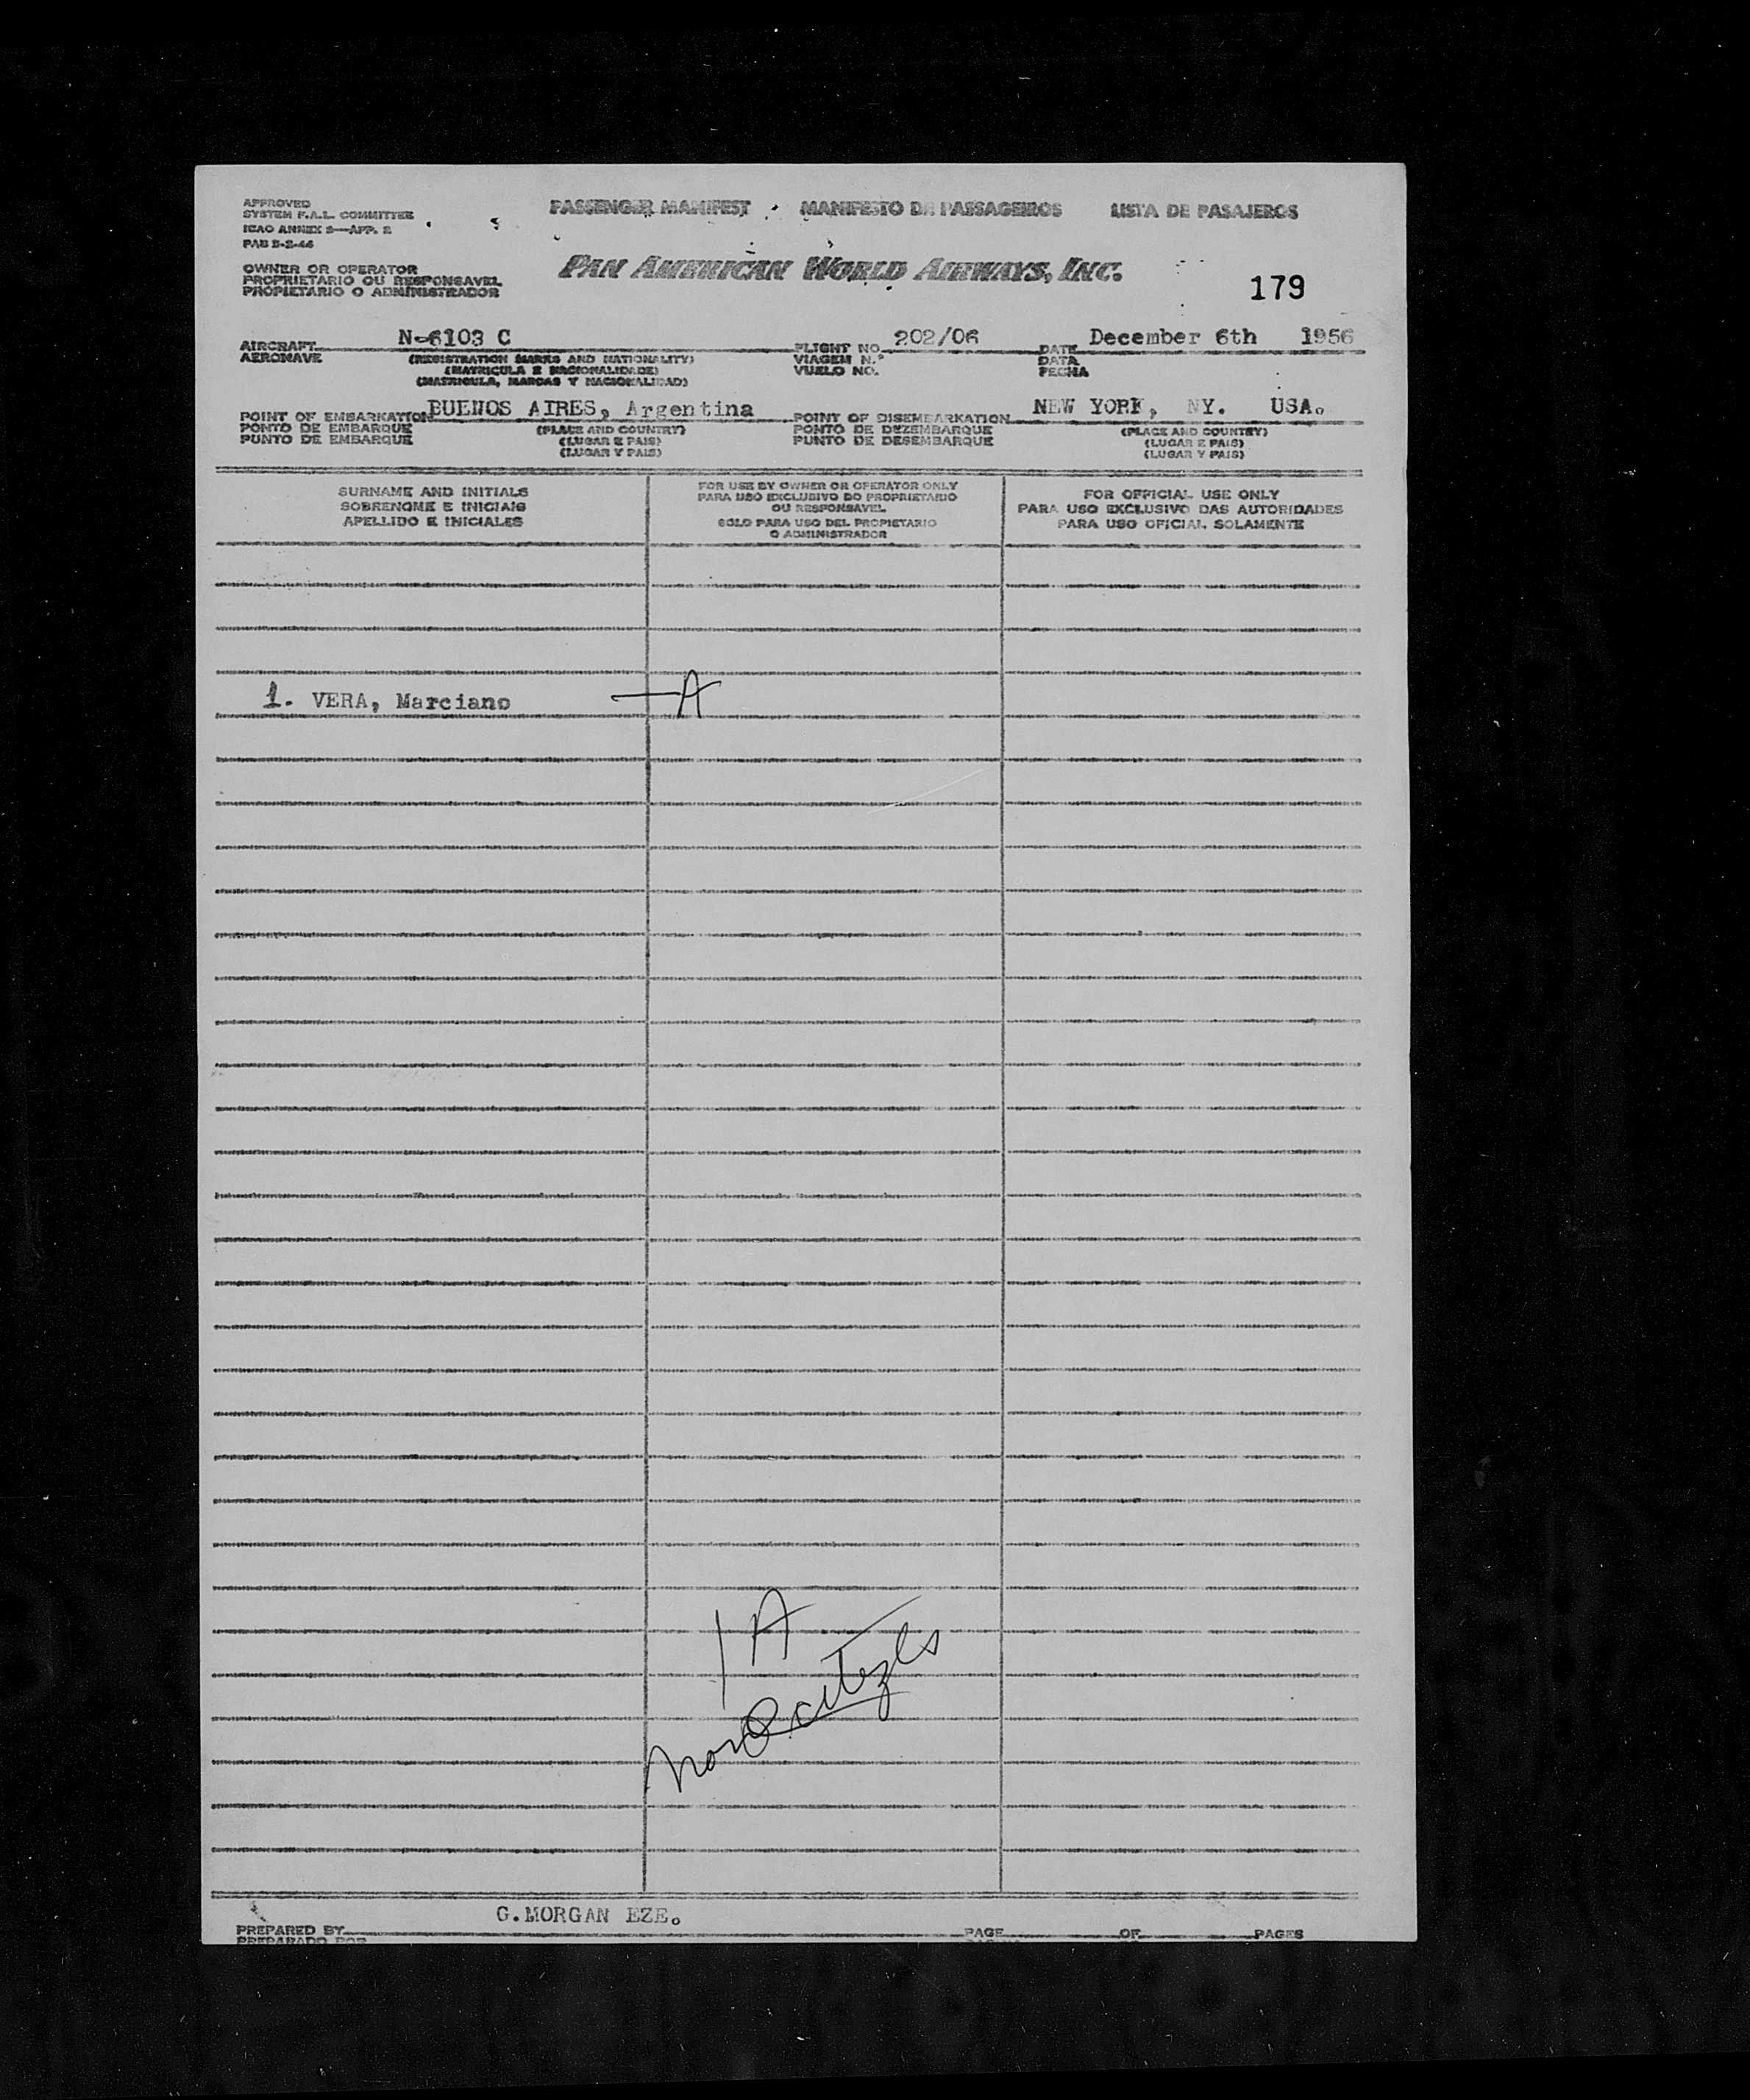 APPROVED
SYSTEM F.A.L. COMMITTEE
ICAO ANNEX 9—APP. 2
PAB 5-2-46
PASSENGER MANIFEST MANIFESTO DE PASSAGEIROS LISTA DE PASAJEROS
OWNER OR OPERATOR
PROPRIETARIO OU RESPONSAVEL
PROPIETARIO O ADMINISTRADOR
PAN AMERICAN WORLD AIRWAYS, INC.
179
AIRCRAFT N-6103 C FLIGHT NO. 202/06 DATE December 6th 1956
AERONAVE (REGISTRATION MARKS AND NATIONALITY) VIAGEM N.º DATA
(MATRICULA E NACIONALIDADE) VUELO NO. FECHA
(MATRICULA, MARCAS Y NACIONALIDAD)
POINT OF EMBARKATION BUENOS AIRES, Argentina POINT OF DISEMBARKATION NEW YORK, NY. USA.
PONTO DE EMBARQUE (PLACE AND COUNTRY) PONTO DE DEZEMBARQUE (PLACE AND COUNTRY)
PUNTO DE EMBARQUE (LUGAR E PAIS) PUNTO DE DESEMBARQUE (LUGAR E PAIS)
(LUGAR Y PAIS) (LUGAR Y PAIS)
SURNAME AND INITIALS
SOBRENOME E INICIAIS
APELLIDO E INICIALES
FOR USE BY OWNER OR OPERATOR ONLY
PARA USO EXCLUSIVO DO PROPRIETARIO
OU RESPONSAVEL
SOLO PARA USO DEL PROPIETARIO
O ADMINISTRADOR
FOR OFFICIAL USE ONLY
PARA USO EXCLUSIVO DAS AUTORIDADES
PARA USO OFICIAL SOLAMENTE
1. VERA, Marciano —A
1 A
G.MORGAN EZE.
PREPARED BY PAGE OF PAGES
PREPARADO POR